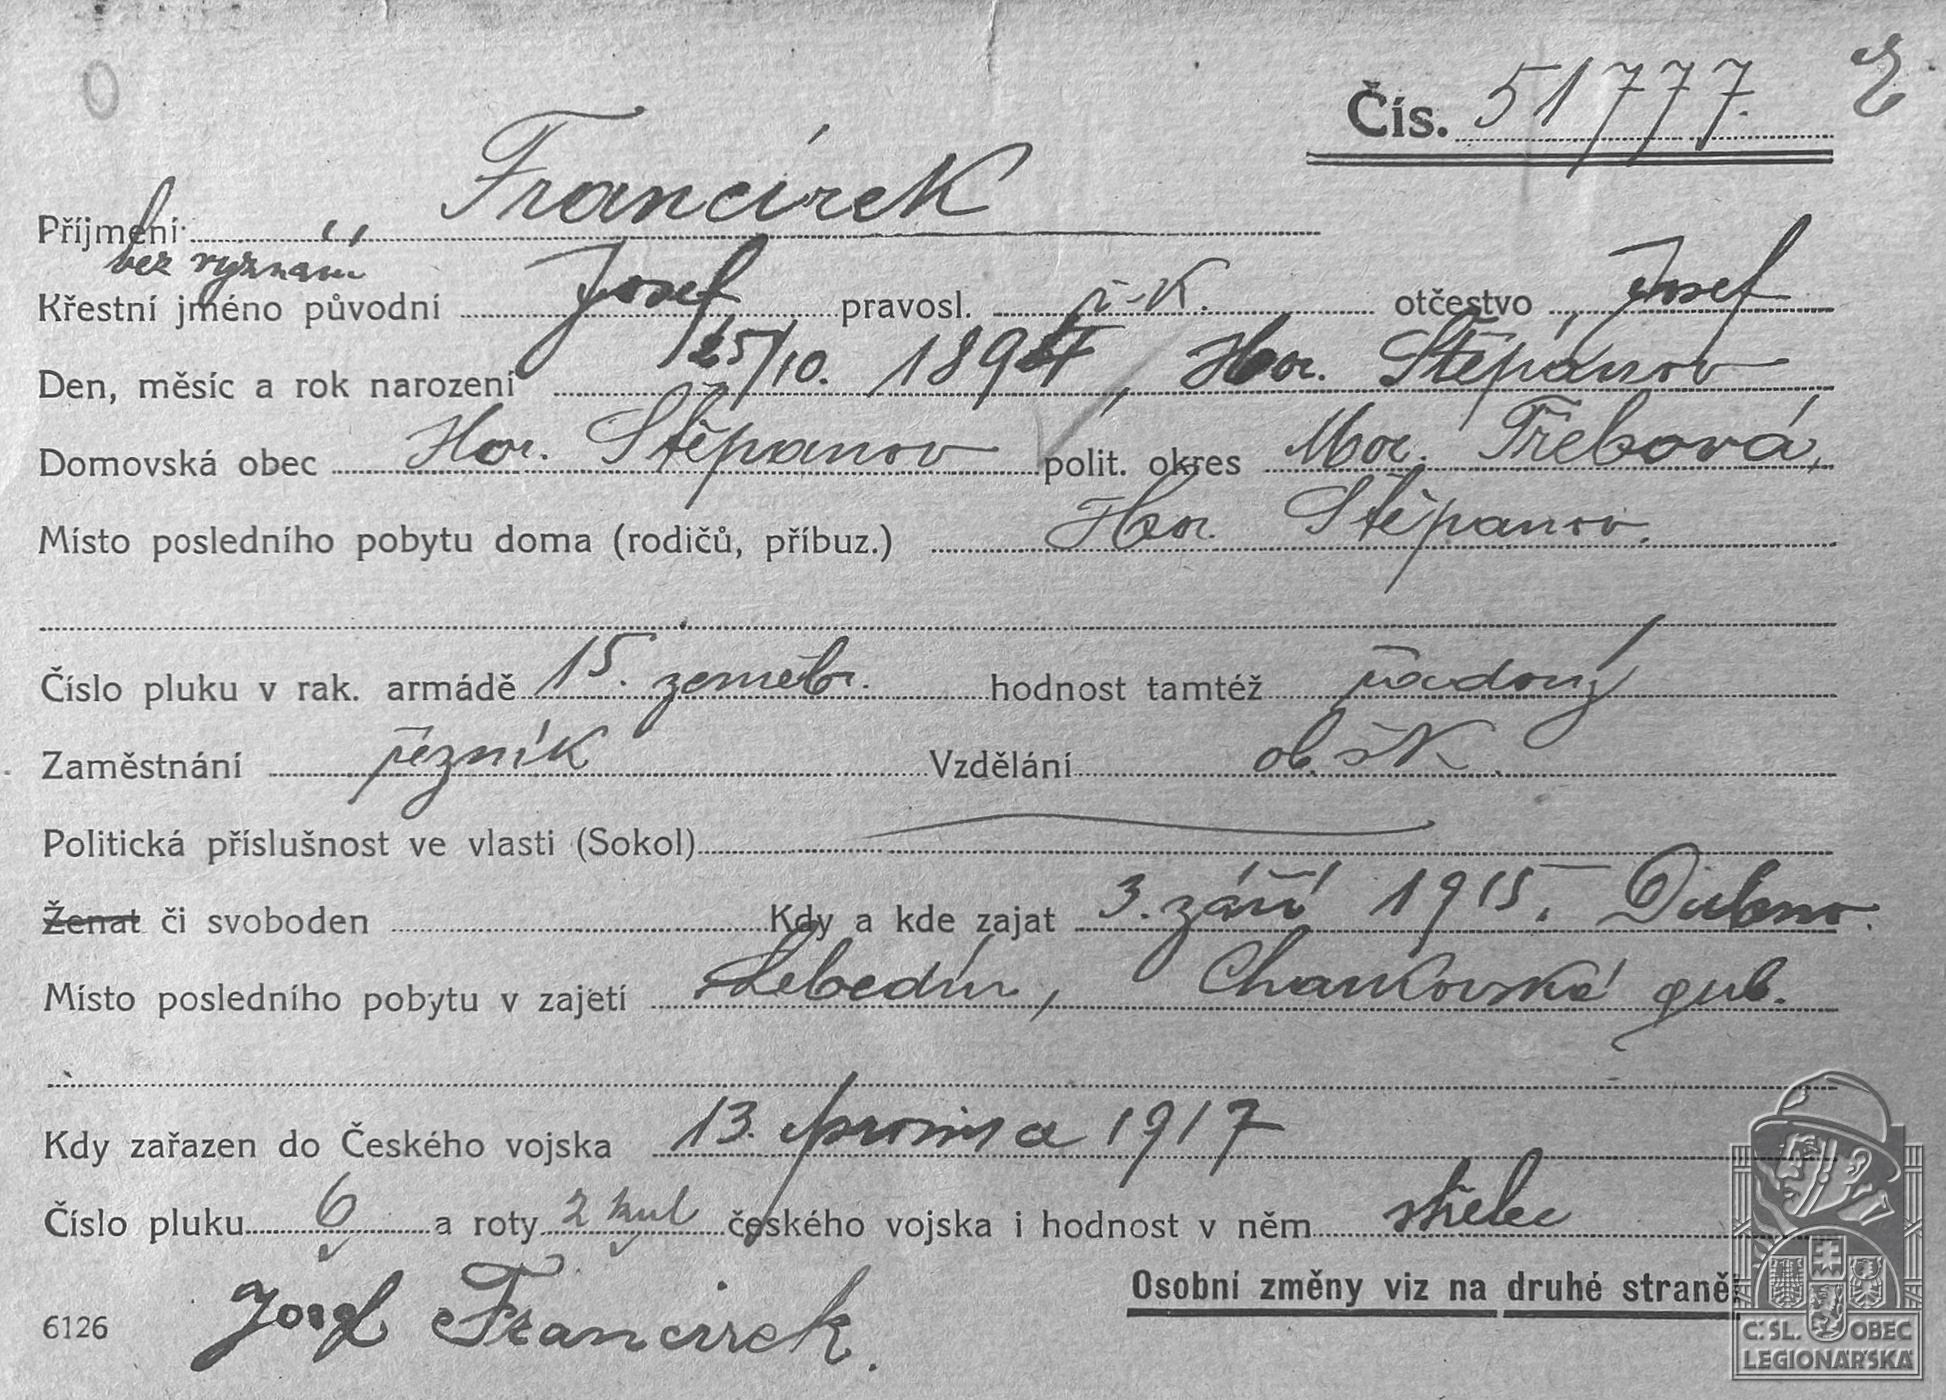 Čís. 51777.
Příjmení Francírek
bez vyznání
Křestní jméno původní Josef pravosl. ř.-k. otčestvo Josef
Den, měsíc a rok narození 25/10. 189 , Hor. Štěpánov
Domovská obec Hor. Štěpanov polit. okres Mor. Třebová,
Místo posledního pobytu doma (rodičů, příbuz.) Hor. Štěpanov.
Číslo pluku v rak. armádě 15. zeměbr. hodnost tamtéž řadový
Zaměstnání řezník Vzdělání ob. šk.
Politická příslušnost ve vlasti (Sokol)
Ženat či svoboden Kdy a kde zajat 3. září 1915. Dubno.
Místo posledního pobytu v zajetí Lebedín, Charkovská gub.
Kdy zařazen do Českého vojska 13. prosince 1917
Číslo pluku 6 a roty 2 kul českého vojska i hodnost v něm střelec
Josef Francirek.
Osobní změny viz na druhé straně!
6126
Č. SL. OBEC
LEGIONÁŘSKÁ